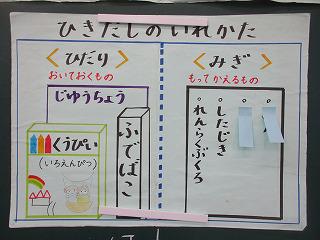 ひきだしのいれかた
〈ひだり〉
おいておくもの
じゆうちょう
くうぴい
(いろえんぴつ)
ふでばこ
〈みぎ〉
もってかえるもの
。したじき
。れんらくぶくろ